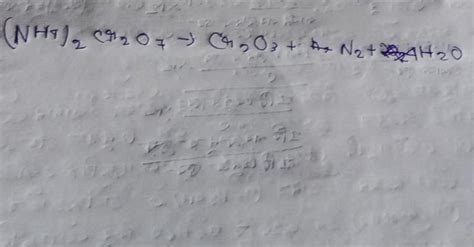 (NH4)2 Cr2O7 → Cr2O3 + N2 + 4H2O